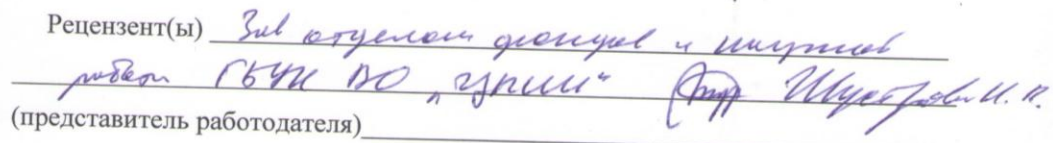 Рецензент(ы) Зав отделом фондов и научной
работы ГБУК ВО „ЦПИИ“ И.
(представитель работодателя)